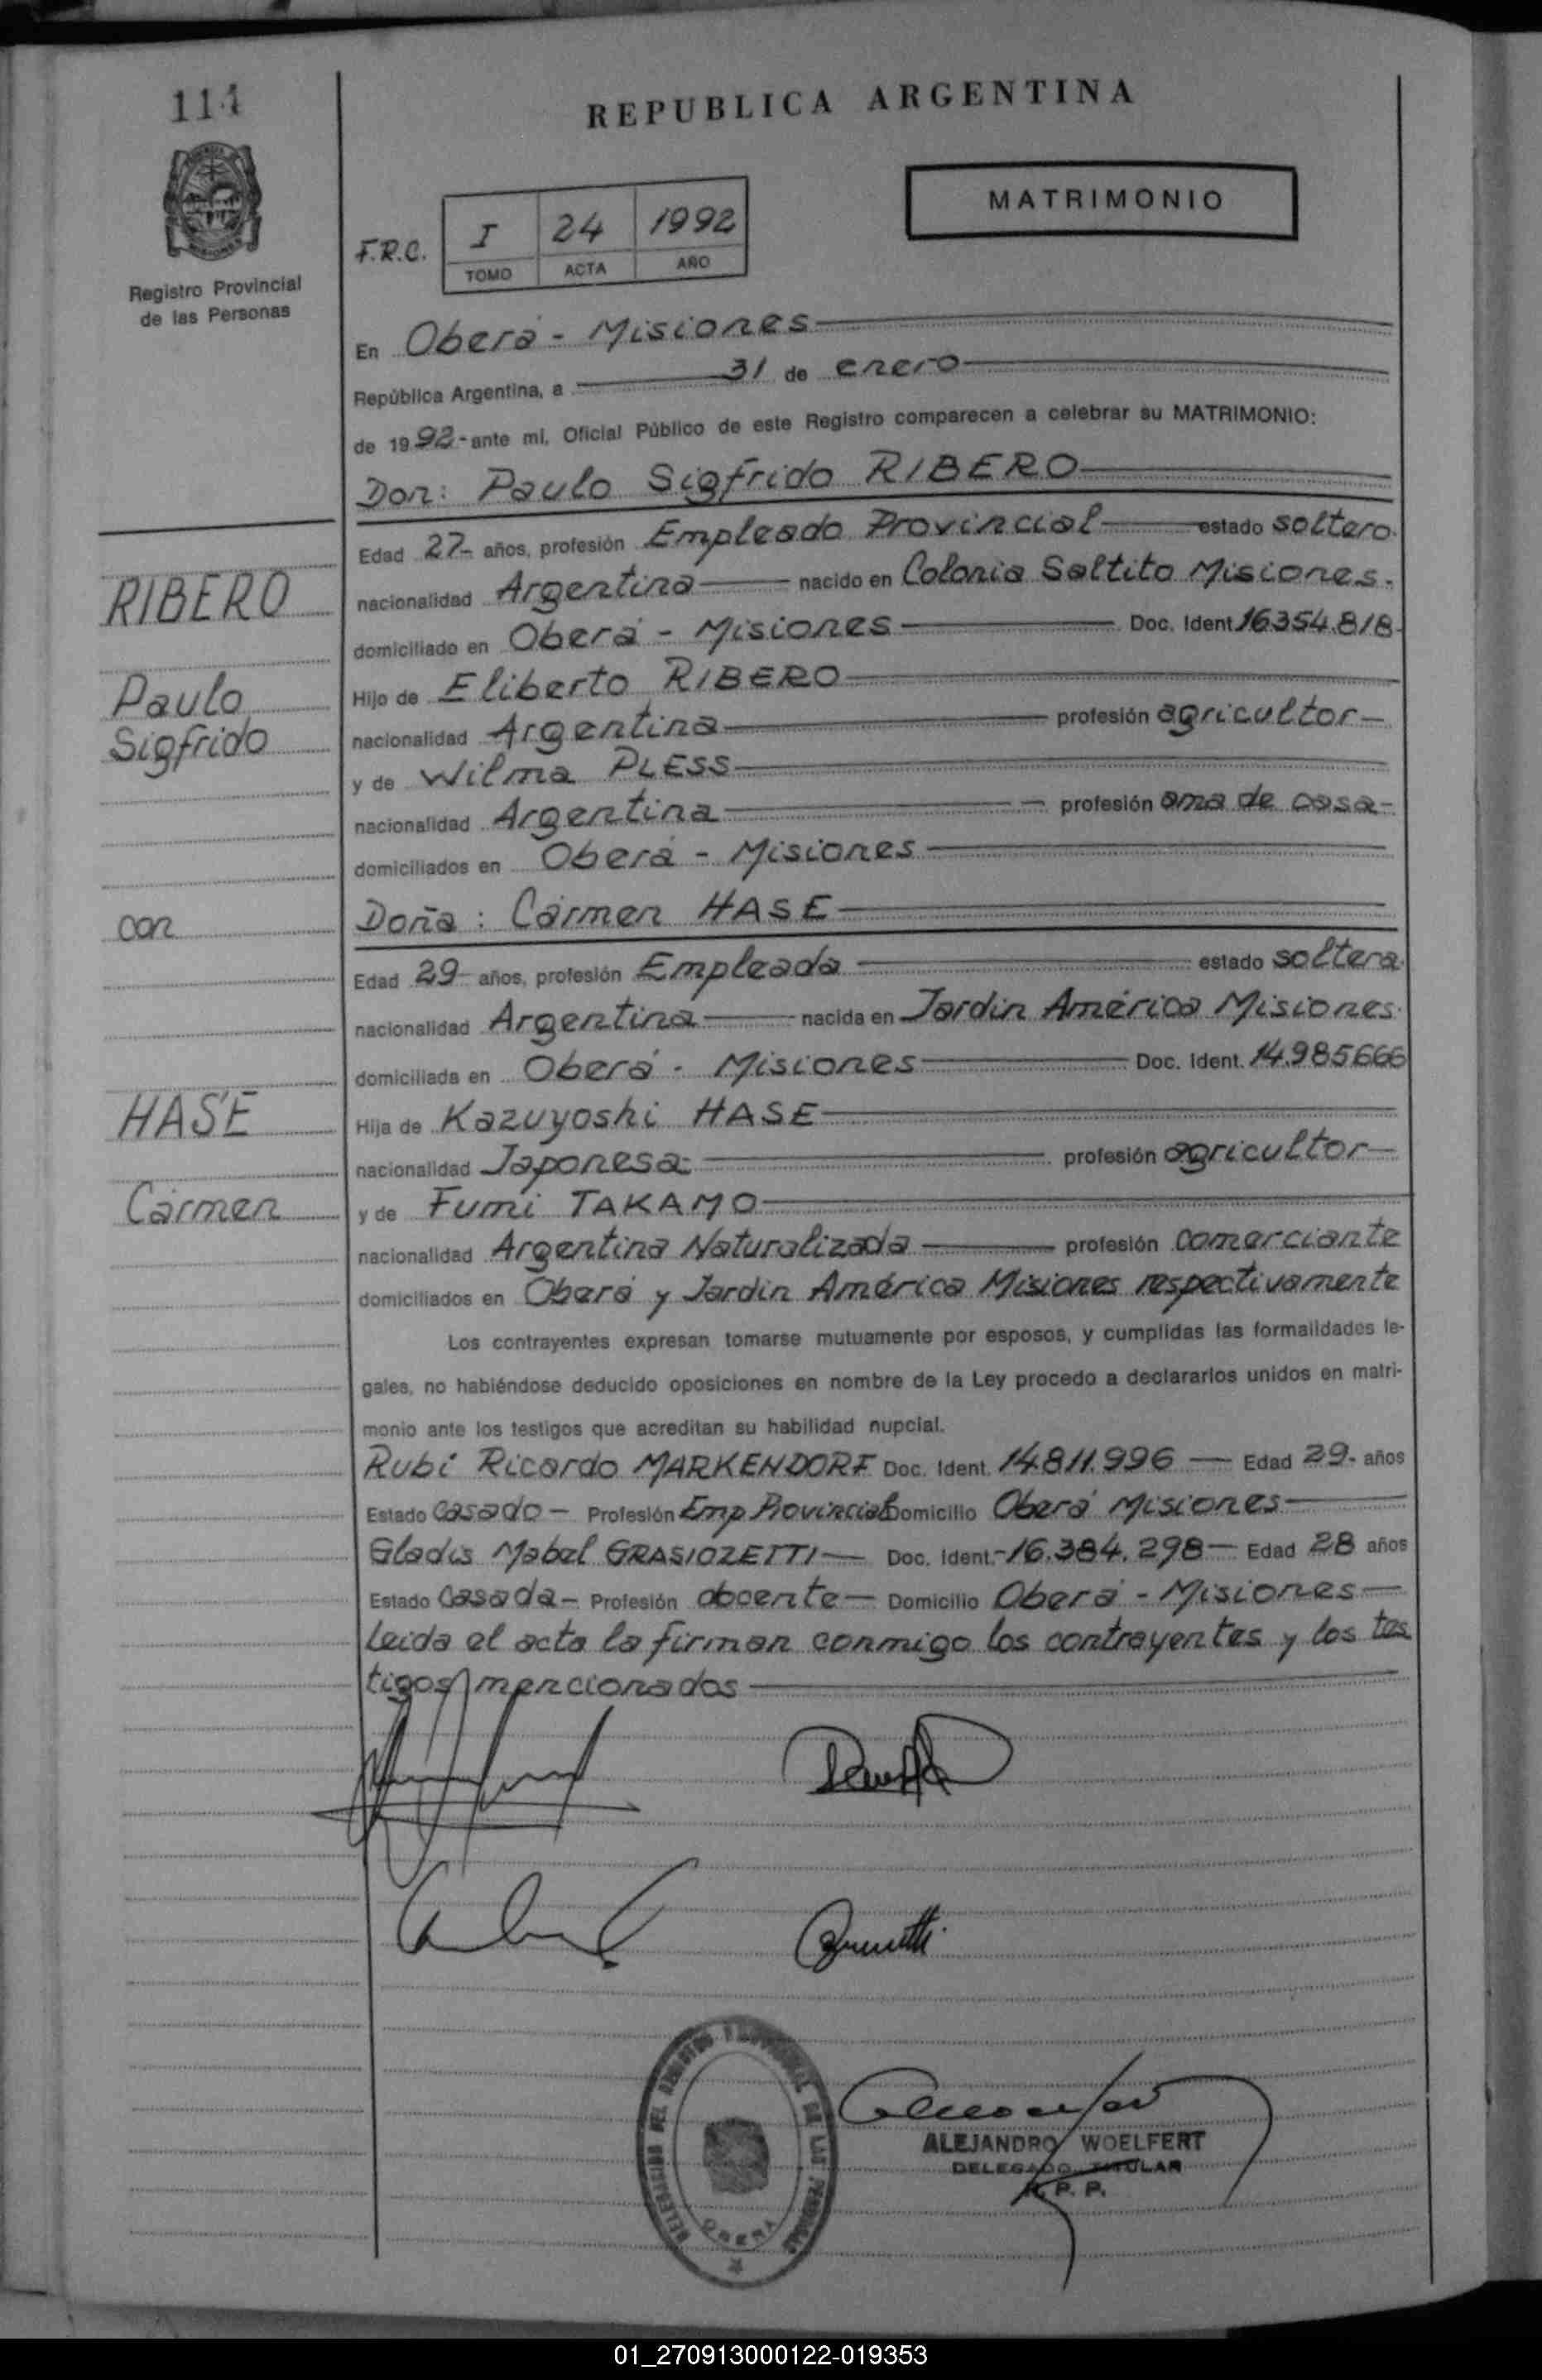 111
REPUBLICA ARGENTINA
MATRIMONIO
Registro Provincial
de las Personas
F.R.C.
I 24 1992
TOMO ACTA AÑO
En Oberá - Misiones
República Argentina, a 31 de enero
de 1992 - ante mí, Oficial Público de este Registro comparecen a celebrar su MATRIMONIO:
Don: Paulo Sigfrido RIBERO
Edad 27 - años, profesión Empleado Provincial estado soltero.
nacionalidad Argentina nacido en Colonia Saltito Misiones.
domiciliado en Oberá - Misiones Doc. Ident 16354.818
Hijo de Eliberto RIBERO
nacionalidad Argentina profesión agricultor
y de Wilma PLESS
nacionalidad Argentina profesión ama de casa
domiciliados en Oberá - Misiones
Doña: Cármen HASE
Edad 29 - años, profesión Empleada estado soltera.
nacionalidad Argentina nacida en Jardín América Misiones.
domiciliada en Oberá - Misiones Doc. Ident. 14.985666
Hija de Kazuyoshi HASE
nacionalidad Japonesa profesión agricultor
y de Fumi TAKAMO
nacionalidad Argentina Naturalizada profesión comerciante
domiciliados en Oberá y Jardin América Misiones respectivamente
Los contrayentes expresan tomarse mutuamente por esposos, y cumplidas las formalidades le-
gales, no habiéndose deducido oposiciones en nombre de la Ley procedo a declararlos unidos en matri-
monio ante los testigos que acreditan su habilidad nupcial.
Rubi Ricardo MARKENDORF Doc. Ident. 14.811.996 Edad 29. años
Estado casado Profesión Emp Provincial Domicilio Oberá Misiones
Gladis Mabel GRASIOZETTI Doc. Ident. 16.384.298 Edad 28 años
Estado casada Profesión docente Domicilio Oberá - Misiones
Leida el acta la firman conmigo los contrayentes y los tes
tigos mencionados
RIBERO
Paulo
Sigfrido
con
HASE
Cármen
DELEGACION DEL REGISTRO PROVINCIAL DE LAS PERSONAS
OBERA
ALEJANDRO WOELFERT
DELEGADO TITULAR
R. P. P.
01_270913000122-019353